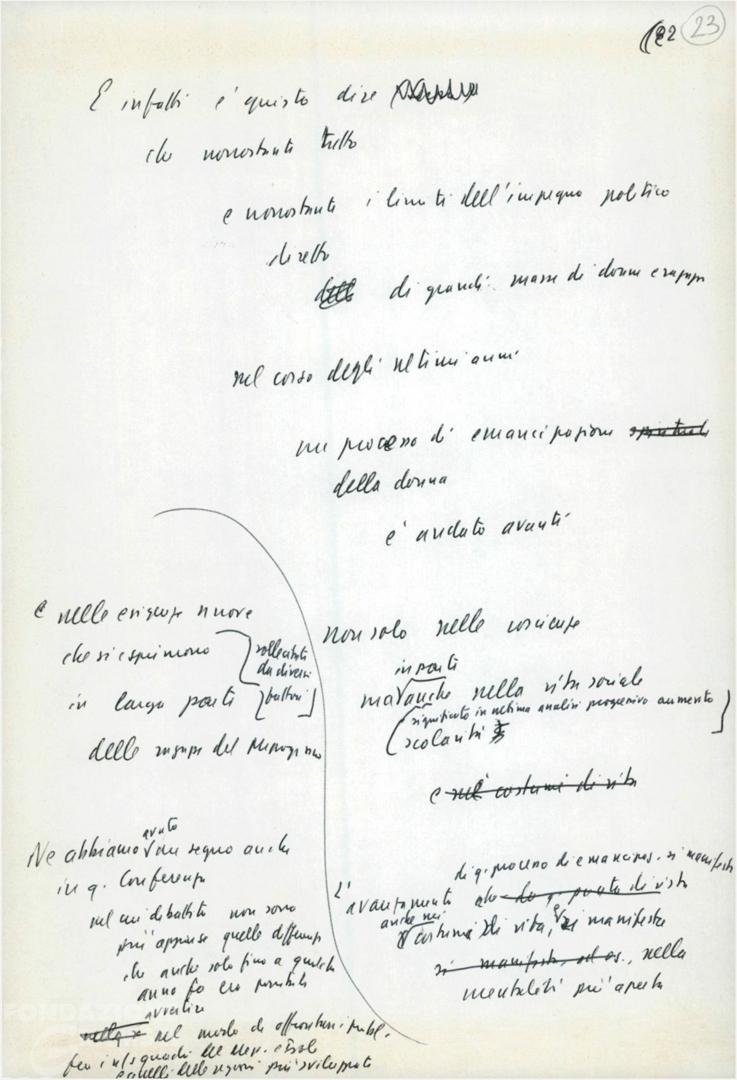 23
E infatti è giusto dire
che nonostante tutto
e nonostante i limiti dell'impegno politico
diretto
di grandi masse di donne e ragazze
nel corso degli ultimi anni
un processo di emancipazione spirituale
della donna
è andato avanti
non solo nelle coscienze
in parte
ma anche nella vita sociale
(significato in ultima analisi progressivo aumento
scolarità
e nel costume di vita
di q. processo di emancipaz. si manifesta
L'avanzamento
anche nei
costumi di vita, si manifesta
si manifesta, nella
mentalità più aperta
e nelle esigenze nuove
che si esprimono
sollecitate
da diversi
fattori
in larga parte
delle ragazze del Mezzogiorno
avuto
Ne abbiamo un segno anche
in q. Conferenza
nel cui dibattito non sono
più apparse quelle differenze
che anche solo fino a qualche
anno fa era possibile
avvertire
nel modo di affrontare i probl.
fra le q quadri del Mez. e Isole
e quelli delle regioni più sviluppate
FONDAZIONE